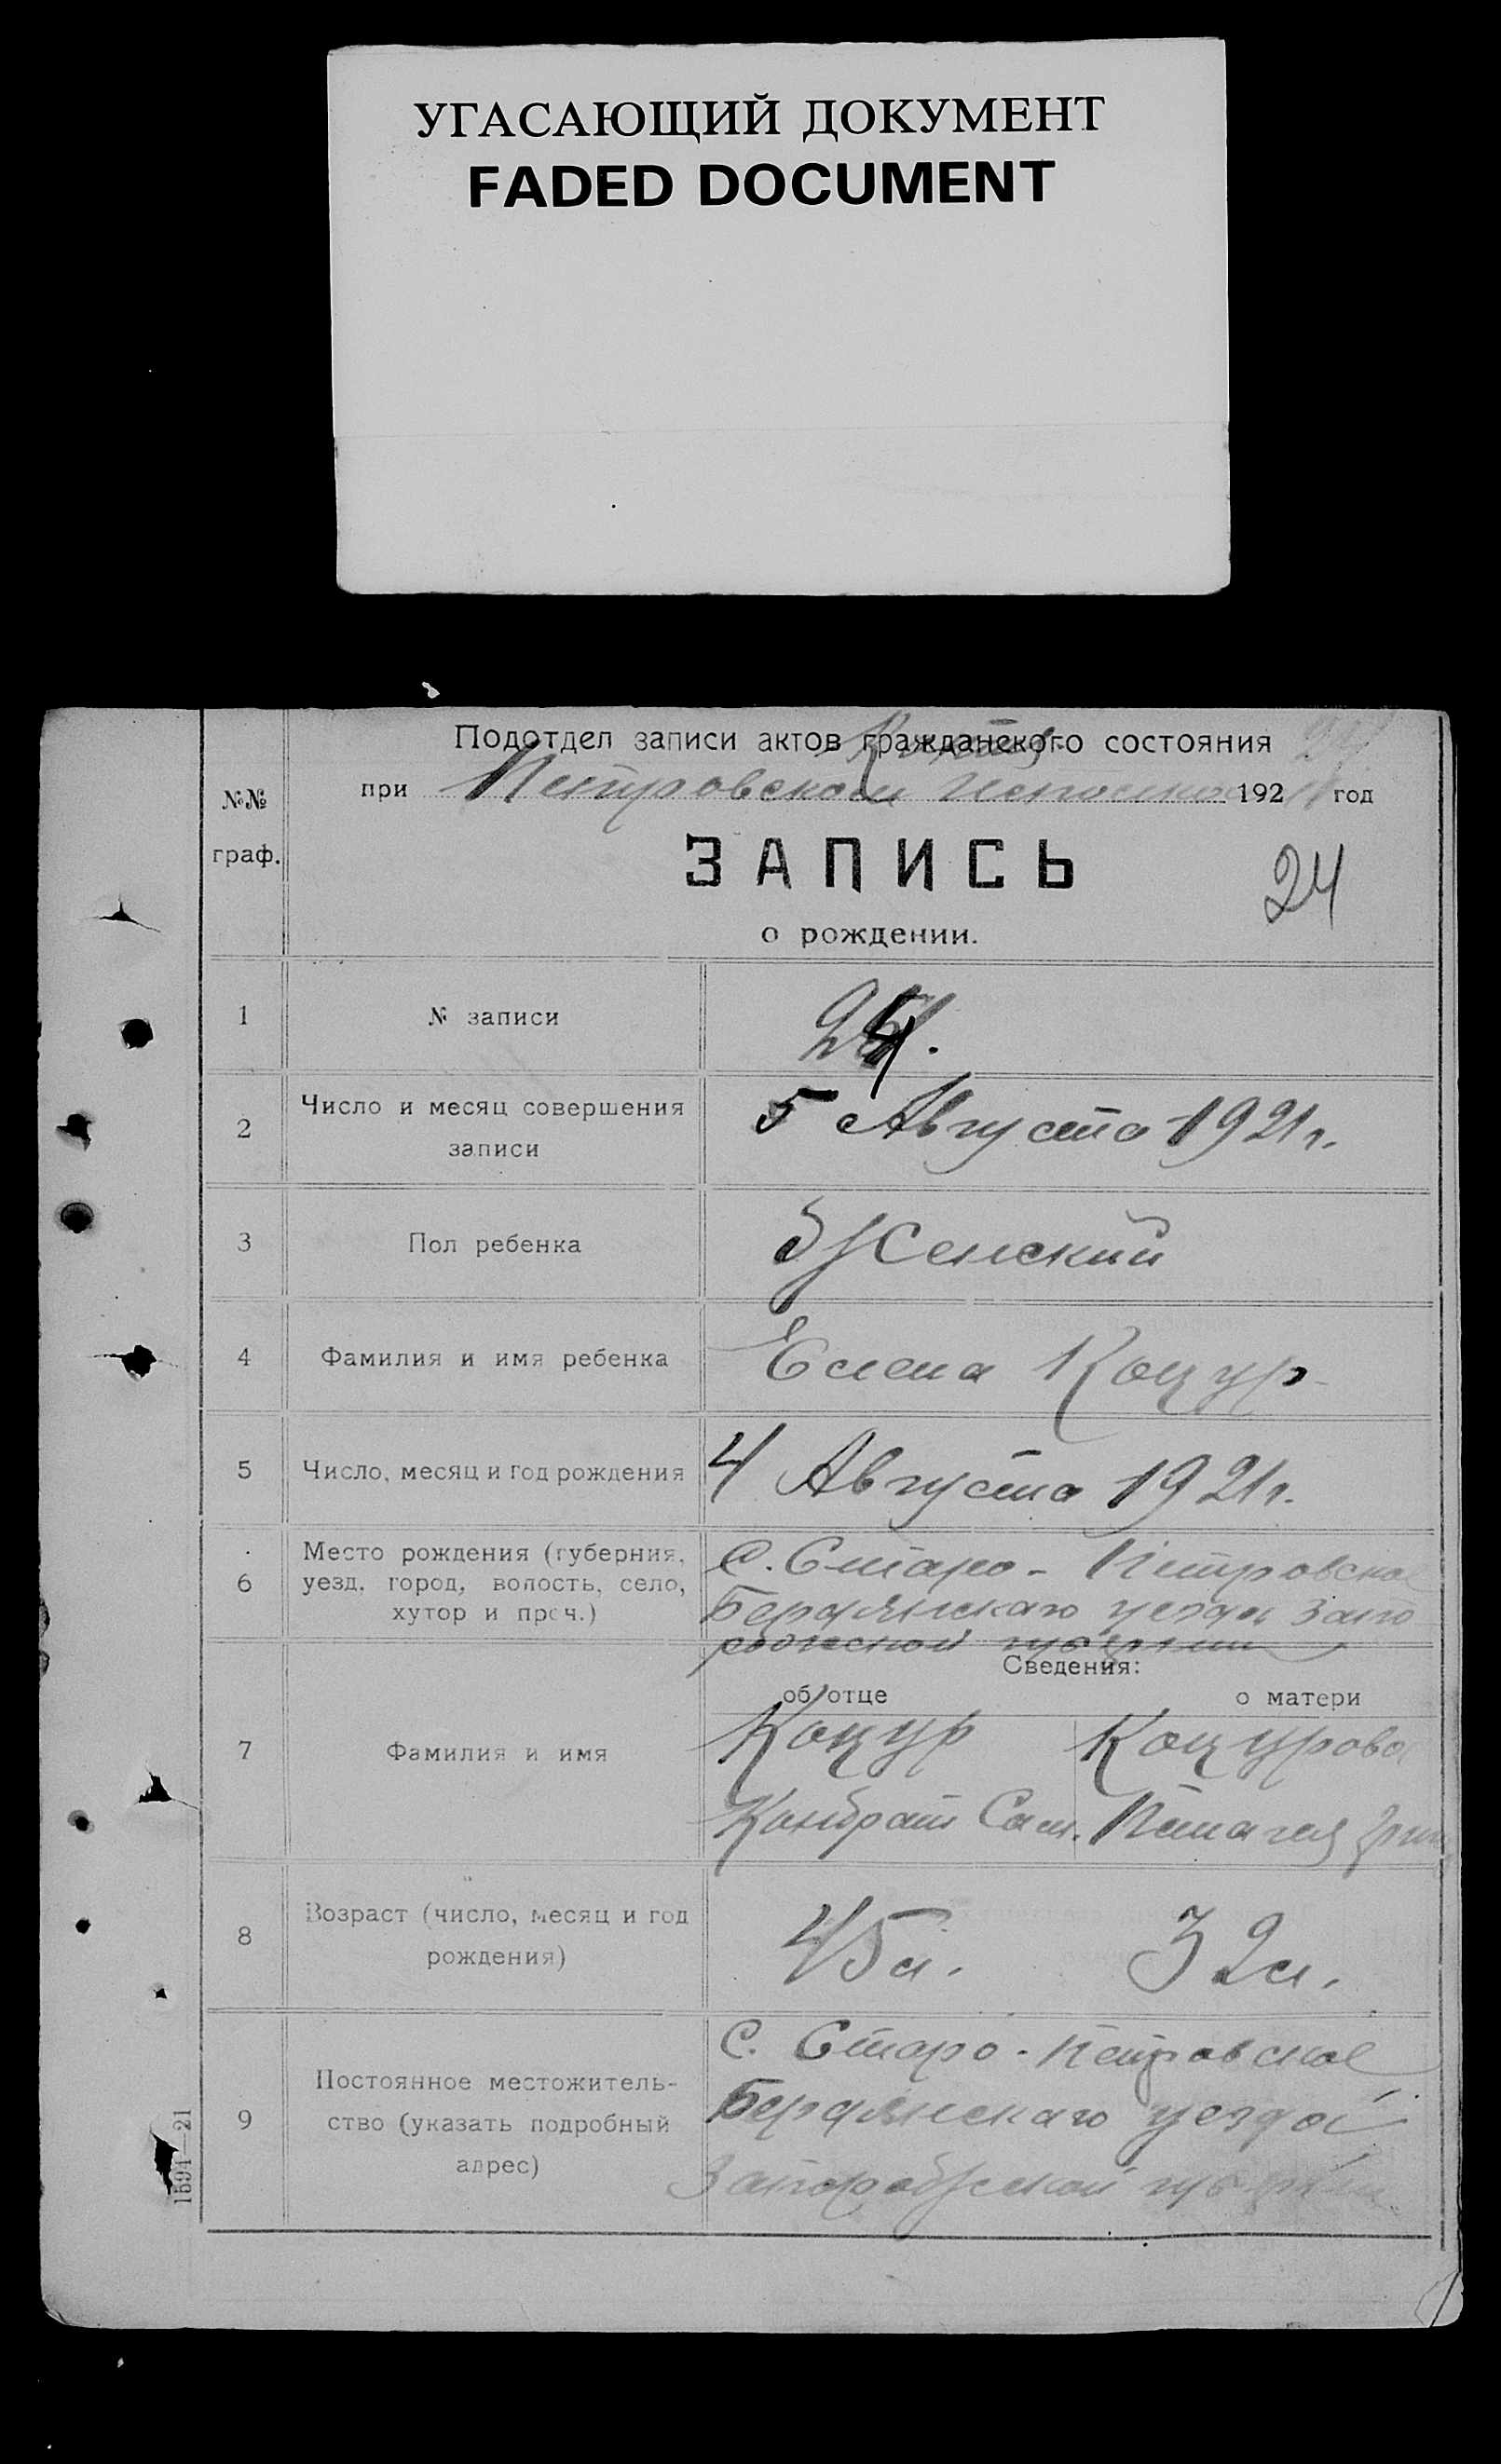 УГАСАЮЩИЙ ДОКУМЕНТ
FADED DOCUMENT
Подотдел записи актов гражданского состояния
при Петровском 192 год
№№
граф.
ЗАПИСЬ
24
о рождении.
1 № записи 24.
2 Число и месяц совершения
записи
5 Августа 1921 г.
3 Пол ребенка Женский
4 Фамилия и имя ребенка Елена Коцур
5 Число, месяц и год рождения 4 Августа 1921 г.
6 Место рождения (губерния,
уезд, город, волость, село,
хутор и проч.)
С. Старо-Петровское
Бердянскаго уезда Запо
рожской губернии
Сведения:
об отце о матери
7 Фамилия и имя
Коцур Коцурова
Кондрат Сам. Пелагея
8 Возраст (число, месяц и год
рождения)
45 л. 32 л.
9 Постоянное местожитель-
ство (указать подробный
адрес)
С. Старо-Петровское
Бердянскаго уезда
Запорожской губернии
1594—21